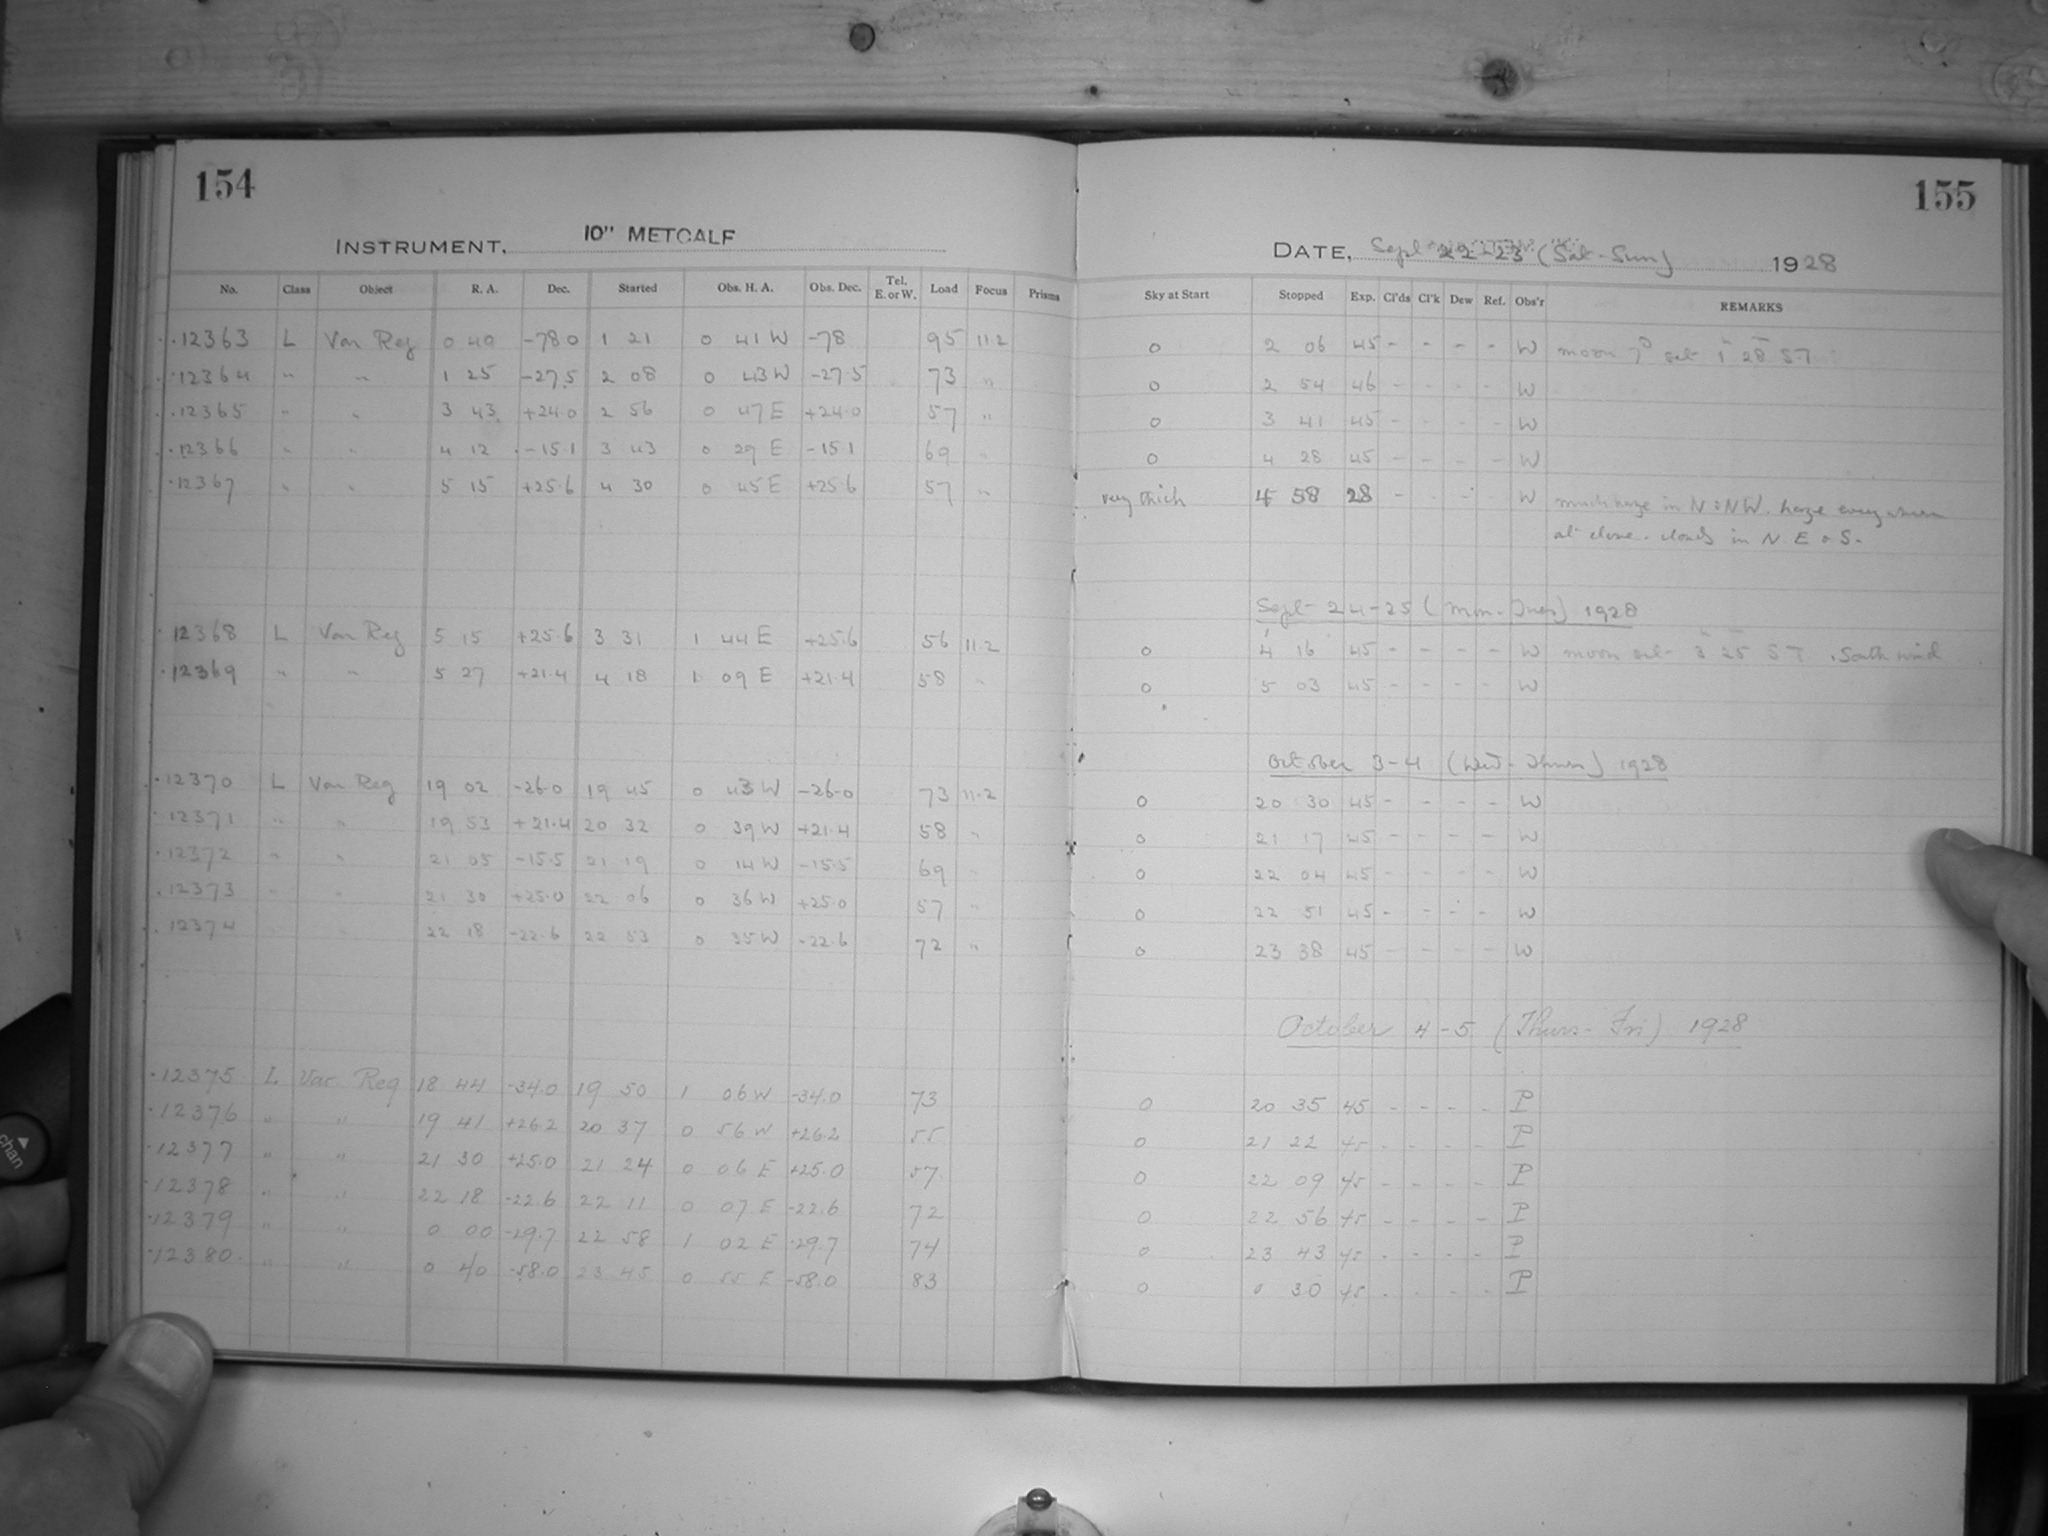 154
INSTRUMENT, 10" METCALF
No. Class Object R. A. Dec. Started Obs. H. A. Obs. Dec. Tel. E. or W. Load Focus Prisms
12363 L Var Reg 0 40 -78.0 1 21 0 41 W -78 95 11.2
12364 " " 1 25 -27.5 2 08 0 43 W -27.5 73 "
12365 " " 3 43 +24.0 2 56 0 47 E +24.0 57 "
12366 " " 4 12 -15.1 3 43 0 29 E -15.1 69 "
12367 " " 5 15 +25.6 4 30 0 45 E +25.6 57 "
12368 L Var Reg 5 15 +25.6 3 31 1 44 E +25.6 56 11.2
12369 " " 5 27 +21.4 4 18 1 09 E +21.4 58 "
12370 L Var Reg 19 02 -26.0 19 45 0 43 W -26.0 73 11.2
12371 " " 19 53 +21.4 20 32 0 39 W +21.4 58 "
12372 " " 21 05 -15.5 21 19 0 14 W -15.5 69 "
12373 " " 21 30 +25.0 22 06 0 36 W +25.0 57 "
12374 " " 22 18 -22.6 22 53 0 35 W -22.6 72 "
12375 L Var Reg 18 44 -34.0 19 50 1 06 W -34.0 73
12376 " " 19 41 +26.2 20 37 0 56 W +26.2 55
12377 " " 21 30 +25.0 21 24 0 06 E +25.0 57
12378 " " 22 18 -22.6 22 11 0 07 E -22.6 72
12379 " " 0 00 -29.7 22 58 1 02 E -29.7 74
12380 " " 0 40 -58.0 23 45 0 55 E -58.0 83
155
DATE, Sept 22-23 (Sat-Sun) 1928
Sky at Start Stopped Exp. Cl'ds Cl'k Dew Ref. Obs'r REMARKS
0 2 06 45 - - - - W moon set 1 28 ST
0 2 54 46 - - - - W
0 3 41 45 - - - - W
0 4 28 45 - - - - W
very thick 4 58 28 - - - - W much haze in N & NW. haze everywhere
at close. clouds in N E & S.
Sept 24-25 (Mon-Tues) 1928
0 4 16 45 - - - - W moon set 3 25 ST. South wind
0 5 03 45 - - - - W
October 3-4 (Wed-Thurs) 1928
0 20 30 45 - - - - W
0 21 17 45 - - - - W
0 22 04 45 - - - - W
0 22 51 45 - - - - W
0 23 38 45 - - - - W
October 4-5 (Thurs-Fri) 1928
0 20 35 45 - - - - P
0 21 22 45 - - - - P
0 22 09 45 - - - - P
0 22 56 45 - - - - P
0 23 43 45 - - - - P
0 0 30 45 - - - - P